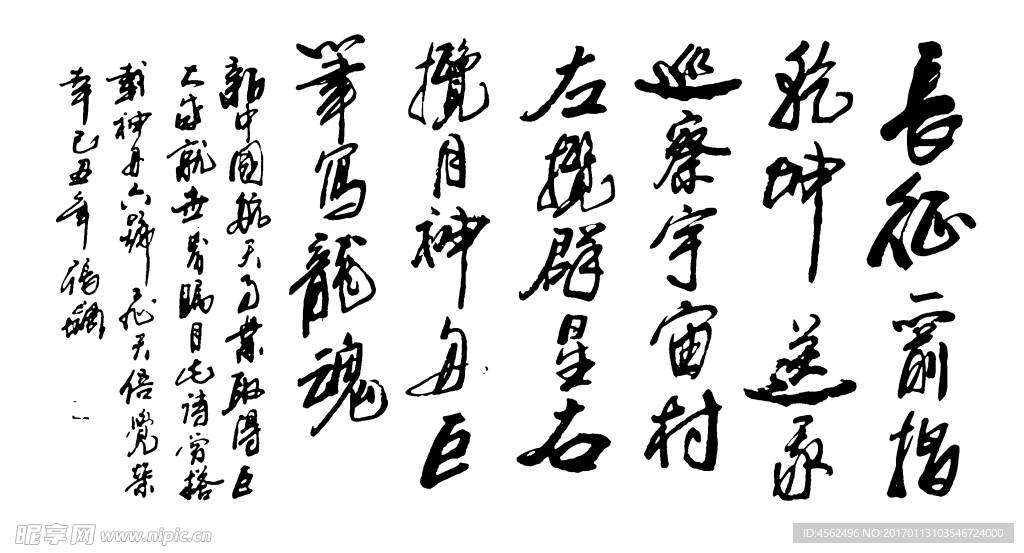 長征箭指
乾坤送我
巡察宇宙村
左攬群星右
攬月神舟巨
筆寫龍魂
新中國航天事業取得巨
大成就世界瞩目此詩曾搭
載神舟六號飛天倍覺榮
幸己丑年
昵享网 www.nipic.cn
ID:4562496 NO:20170113103546724000